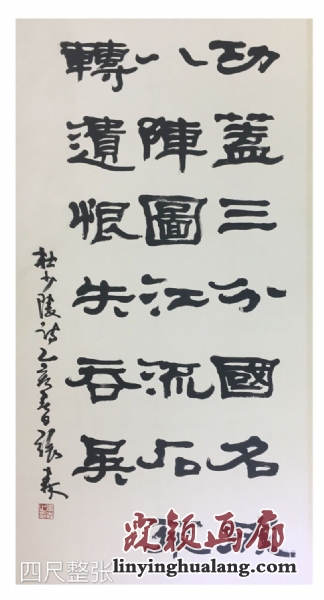 功蓋三分國名
八陣圖江流石
轉遺恨失吞吳
杜少陵詩乙亥春日張森
颖画廊
linyinghualang.com
四尺整张